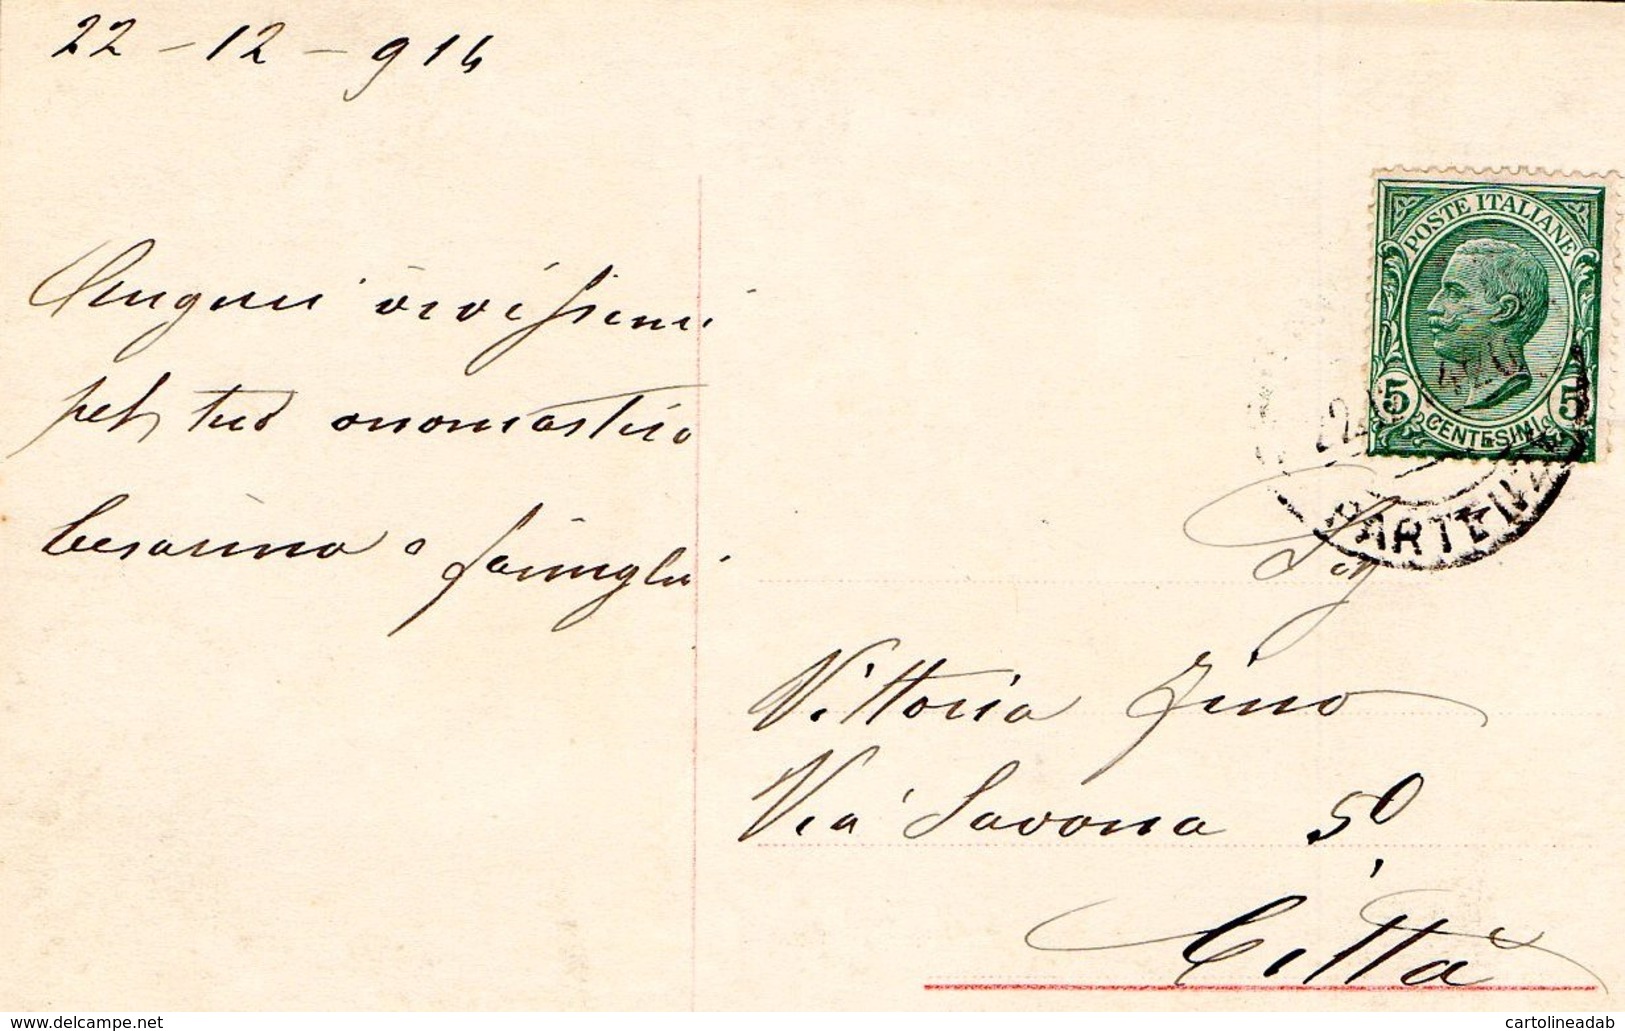 22 - 12 - 914
Auguri vivissimi
pel tuo onomastico
Cesarina e famiglia
POSTE ITALIANE
5 CENTESIMI 5
PARTENZA
Sig
Vittoria Zino
Via Savona 50
Città
www.delcampe.net
cartolineadab